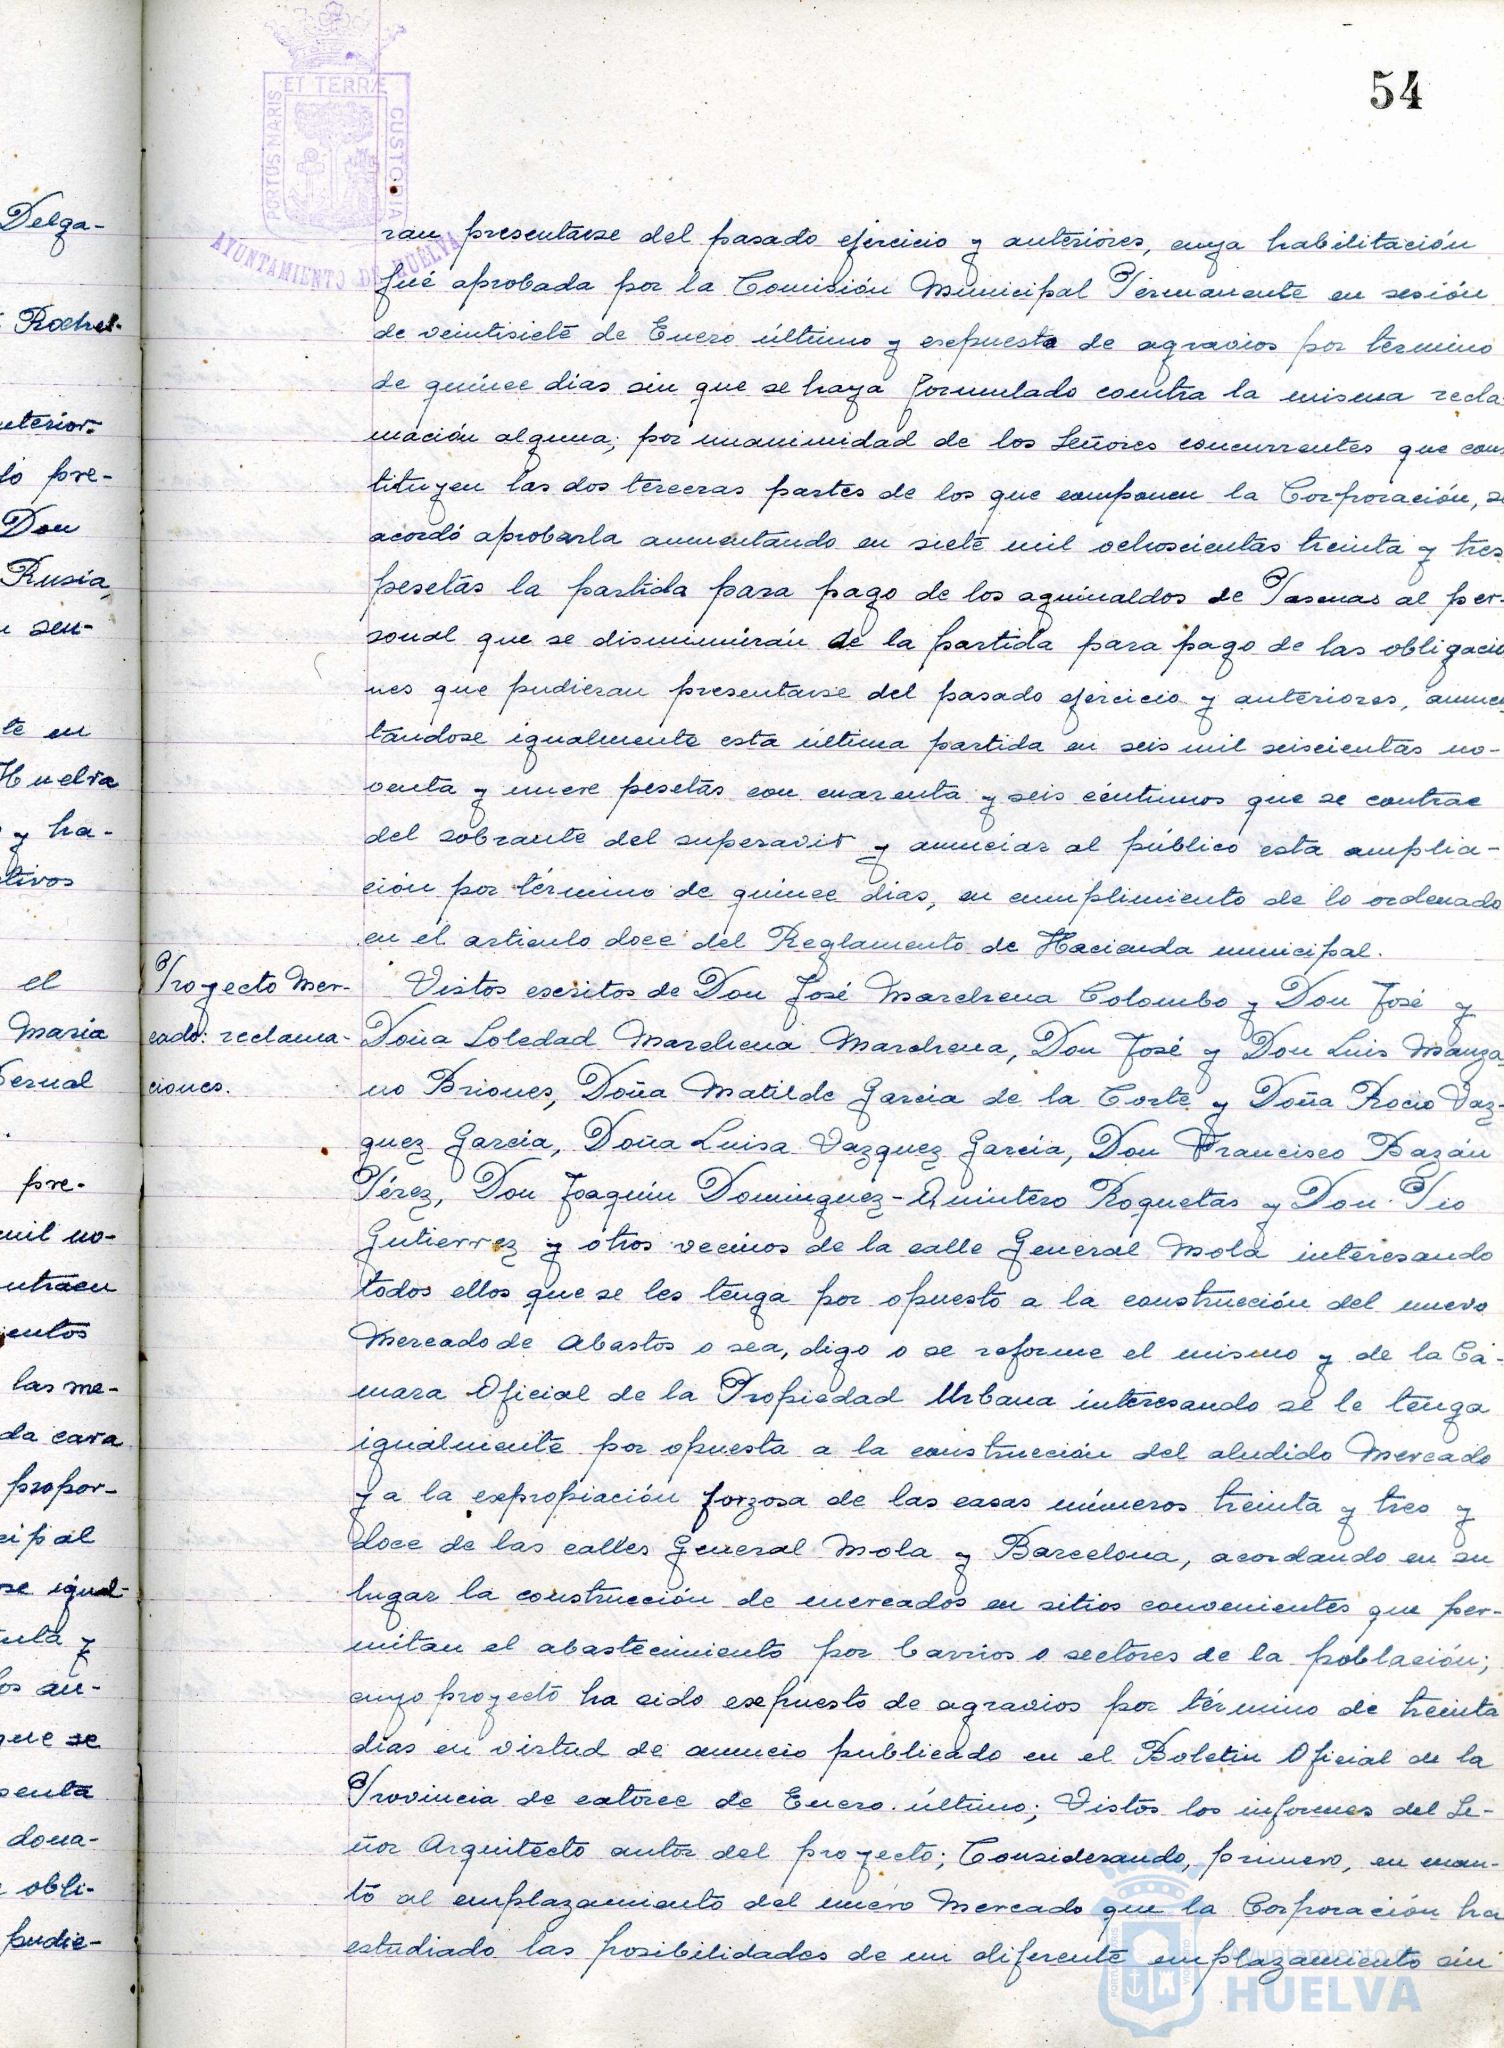 54
PORTUS MARIS ET TERRÆ CUSTODIA
AYUNTAMIENTO DE HUELVA
ran presentarse del pasado ejercicio y anteriores, cuya habilitación
fué aprobada por la Comisión Municipal Permanente en sesión
de veintisiete de Enero último y expuesta de agravios por término
de quince dias sin que se haya formulado contra la misma recla-
mación alguna; por unanimidad de los Señores concurrentes que cons
tituyen las dos terceras partes de los que componen la Corporación, se
acordó aprobarla aumentando en siete mil ochoscientas treinta y tres
pesetas la partida para pago de los aguinaldos de Pascuas al per-
sonal que se disminuirán de la partida para pago de las obligacio
nes que pudieran presentarse del pasado ejercicio y anteriores, aumen
tandose igualmente esta última partida en seis mil seiscientas no-
venta y nueve pesetas con cuarenta y seis céntimos que se contrae
del sobrante del superavit y anunciar al público esta amplia-
ción por término de quince dias, en cumplimiento de lo ordenado
en el articulo doce del Reglamento de Hacienda municipal.
Proyecto Mer-
cado: reclama-
ciones.
Vistos escritos de Don José Marchena Colombo y Don José y
Doña Soledad Marchena Marchena, Don José y Don Luis Manza
no Briones, Doña Matilde Garcia de la Corte y Doña Rocio Vaz-
quez Garcia, Doña Luisa Vazquez Garcia, Don Francisco Bazán
Pérez, Don Joaquin Dominguez-Quintero Roquetas y Don Pio
Gutierrez y otros vecinos de la calle General Mola interesando
todos ellos que se les tenga por opuesto a la construcción del nuevo
Mercado de Abastos o sea, digo o se reforme el mismo y de la Cá-
mara Oficial de la Propiedad Urbana interesando se le tenga
igualmente por opuesta a la construcción del aludido Mercado
y a la expropiación forzosa de las casas números treinta y tres y
doce de las calles General Mola y Barcelona, acordando en su
lugar la construcción de mercados en sitios convenientes que per-
mitan el abastecimiento por barrios o sectores de la población;
cuyo proyecto ha sido expuesto de agravios por término de treinta
dias en virtud de anuncio publicado en el Boletin Oficial de la
Provincia de catorce de Enero último; Vistos los informes del Se-
ñor Arquitecto autor del proyecto; Considerando, primero, en cuan-
to al emplazamiento del nuevo Mercado que la Corporación ha
estudiado las posibilidades de un diferente emplazamiento sin
Delga-
anterior-
pre-
Don
Rusia,
sen-
te en
Huelva
y ha-
el
Maria
pre-
mil no-
las me-
da cara
propor-
igual-
y
que se
dona-
obli-
pudie-
Ayuntamiento de
HUELVA